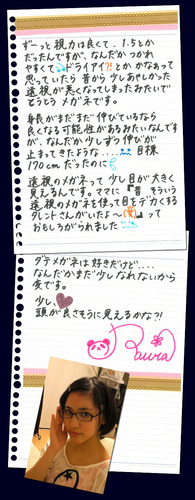 ずーっと視力は良くて、1.5とか
だったんですが、なんだかつかれ
やすくてドライアイ?!とかかなぁって
思っていたら昔から少しあやしかった
遠視が悪くなってしまったみたいで
どうとうメガネです。
身長がまだまだ伸びているなら
良くなる可能性があるみたいなんです
が、なんだか少しずつ伸びが
止まってきたような…… 目標
170cmだったのに
遠視のメガネって少し目が大きく
見えるんです。ママに『昔そういう
遠視のメガネを使って目をデカくする
タレントさんがいたよ〜(笑)』って
おもしろがられました
ダテメガネは好きだけど....
なんだかまだ少しなれないから
変です。
少し、
頭が良さそうに見えるかな?!
Raura